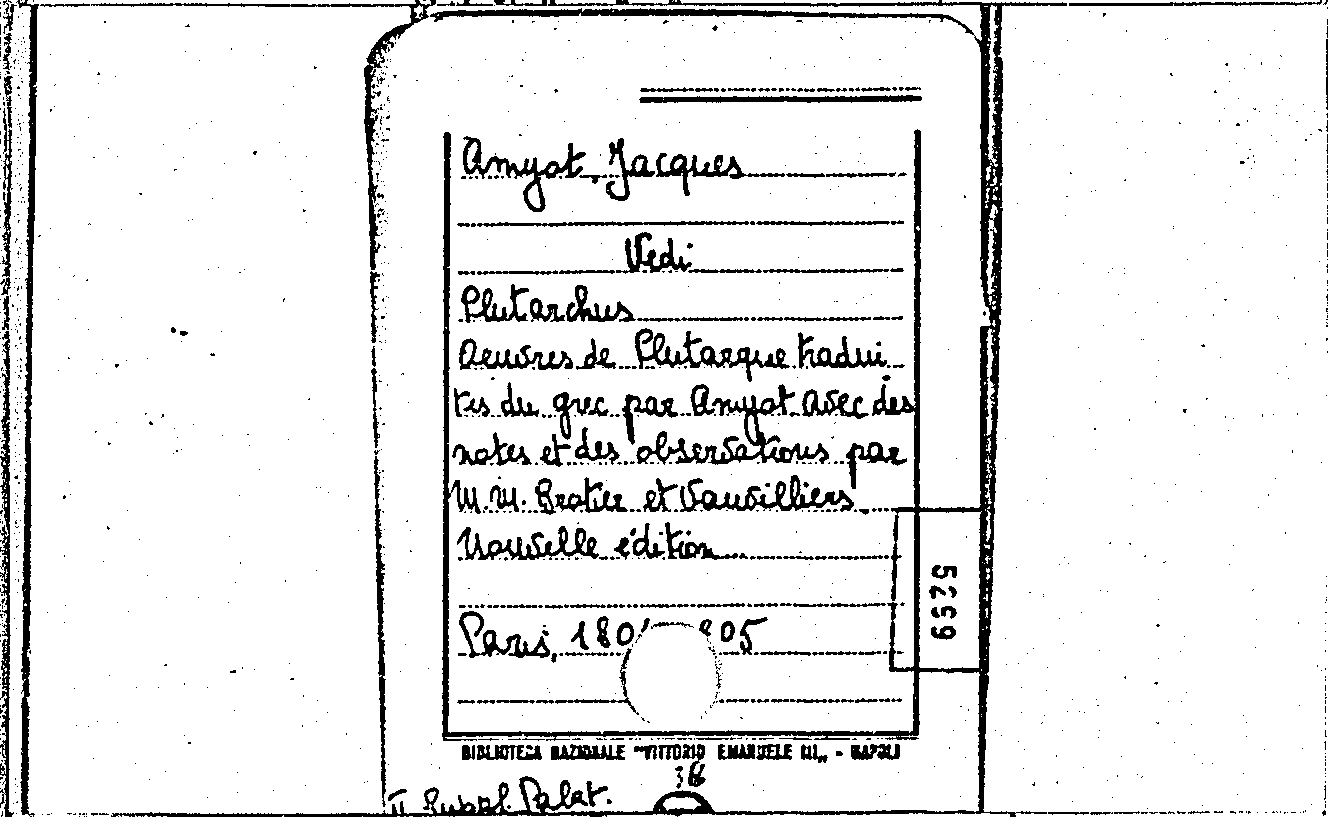 Amyot, Jacques
Vedi
Plutarchus
Oeuvres de Plutarque tradui
tes du grec par Amyot avec des
notes et des observations par
M.M. Brotier et Vauvilliers.
Nouvelle édition
Paris, 180 805
BIBLIOTECA NAZIONALE "VITTORIO EMANUELE III„ - NAPOLI
II Suppl. Palat.
5299